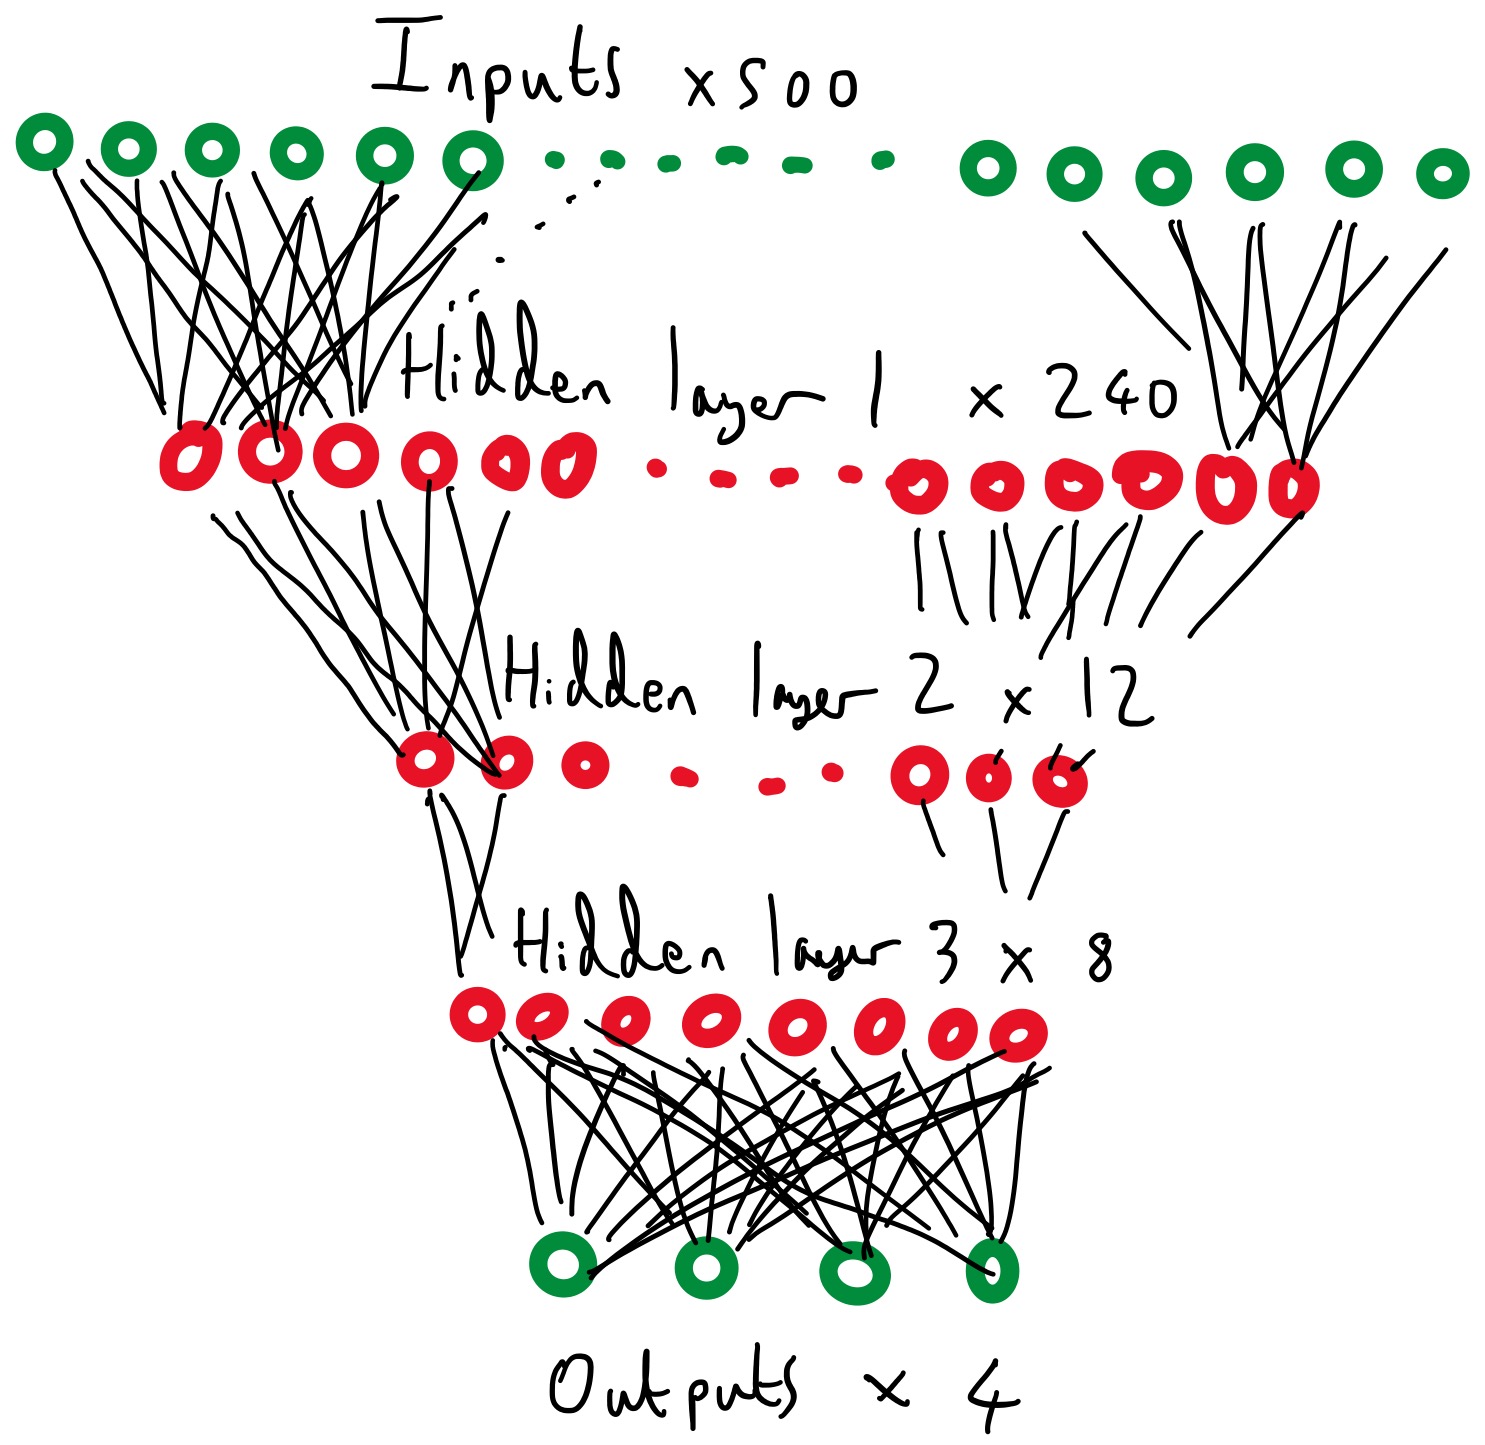 Inputs x500
Hidden layer 1 x 240
Hidden layer 2 x 12
Hidden layer 3 x 8
Outputs x 4